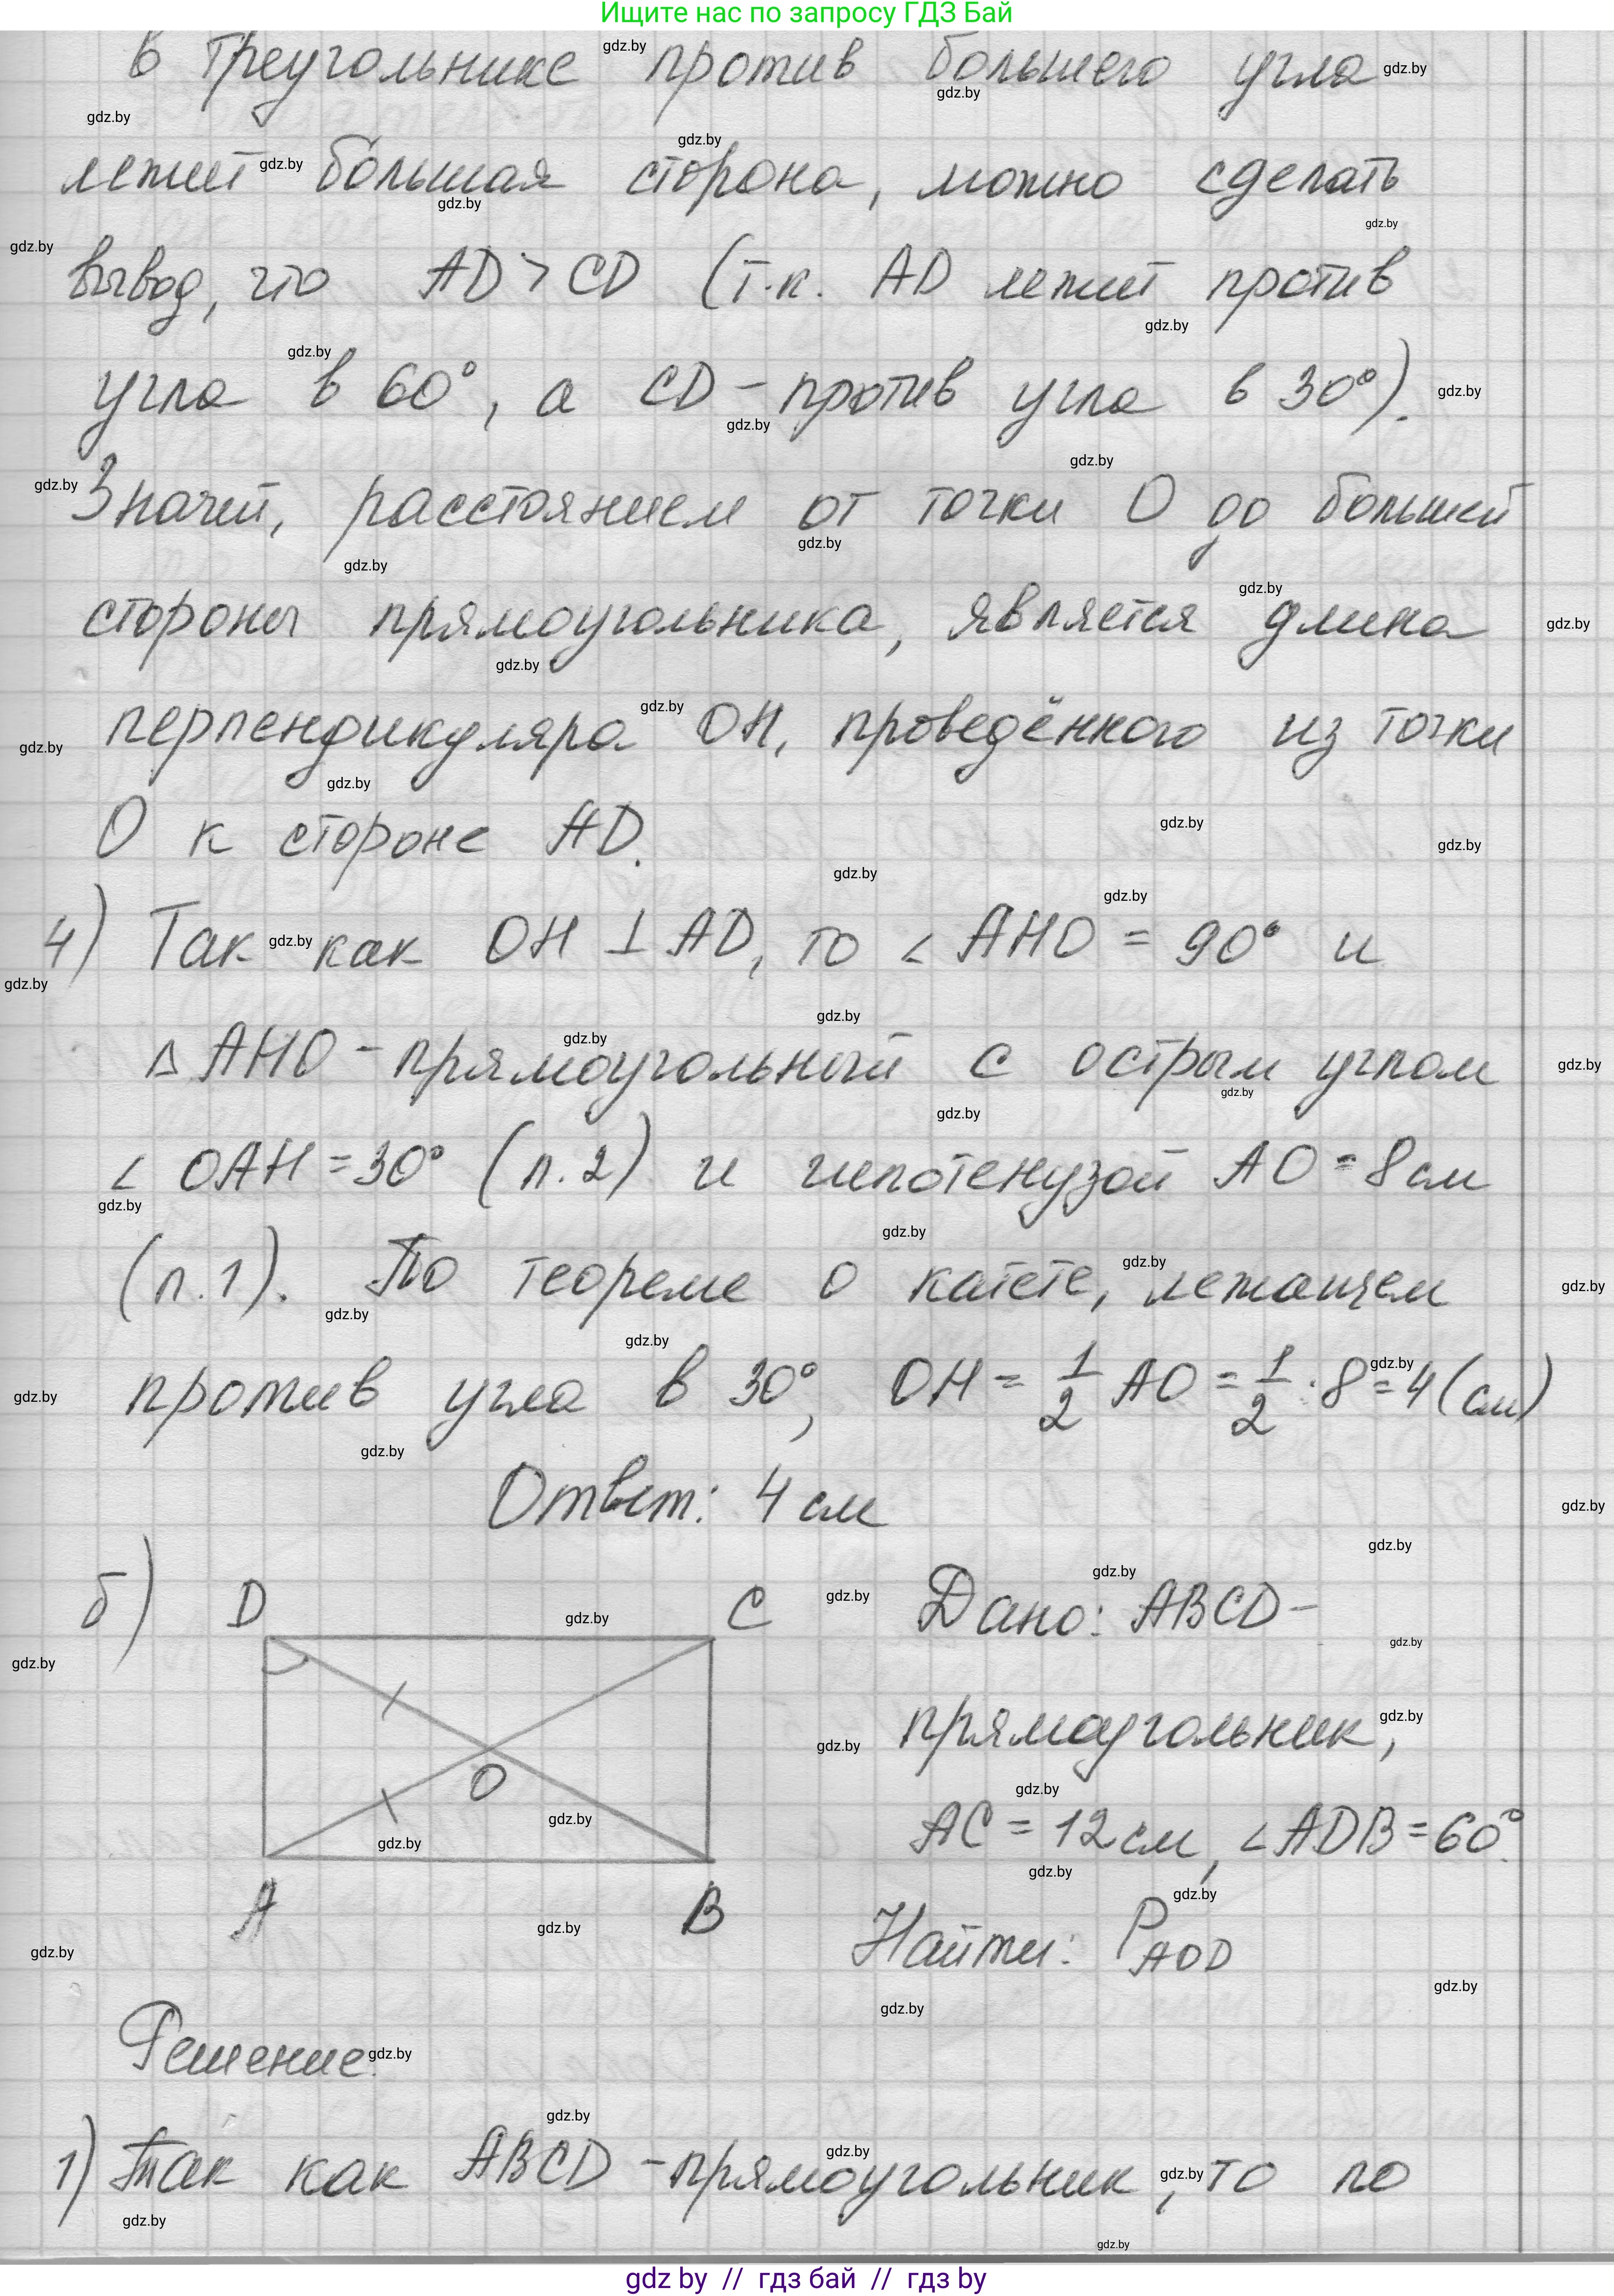 Ищите нас по запросу ГДЗ Бай
в треугольнике против большего угла
лежит большая сторона, можно сделать
вывод, что AD > CD (т.к. AD лежит против
угла в 60°, а CD - против угла в 30°).
Значит, расстоянием от точки O до большей
стороны прямоугольника, является длина
перпендикуляра OH, проведённого из точки
O к стороне AD.
4) Так как OH ⊥ AD, то ∠AHO = 90° и
△AHO - прямоугольный с острым углом
∠OAH = 30° (п.2) и гипотенузой AO = 8 см
(п.1). По теореме о катете, лежащем
против угла в 30°, OH = 1/2 AO = 1/2 · 8 = 4 (см)
Ответ: 4 см
б) D C Дано: ABCD -
прямоугольник,
O
AC = 12 см, ∠ADB = 60°.
A B
Найти: P AOD
Решение.
1) Так как ABCD - прямоугольник, то по
gdz by // гдз бай // гдз by